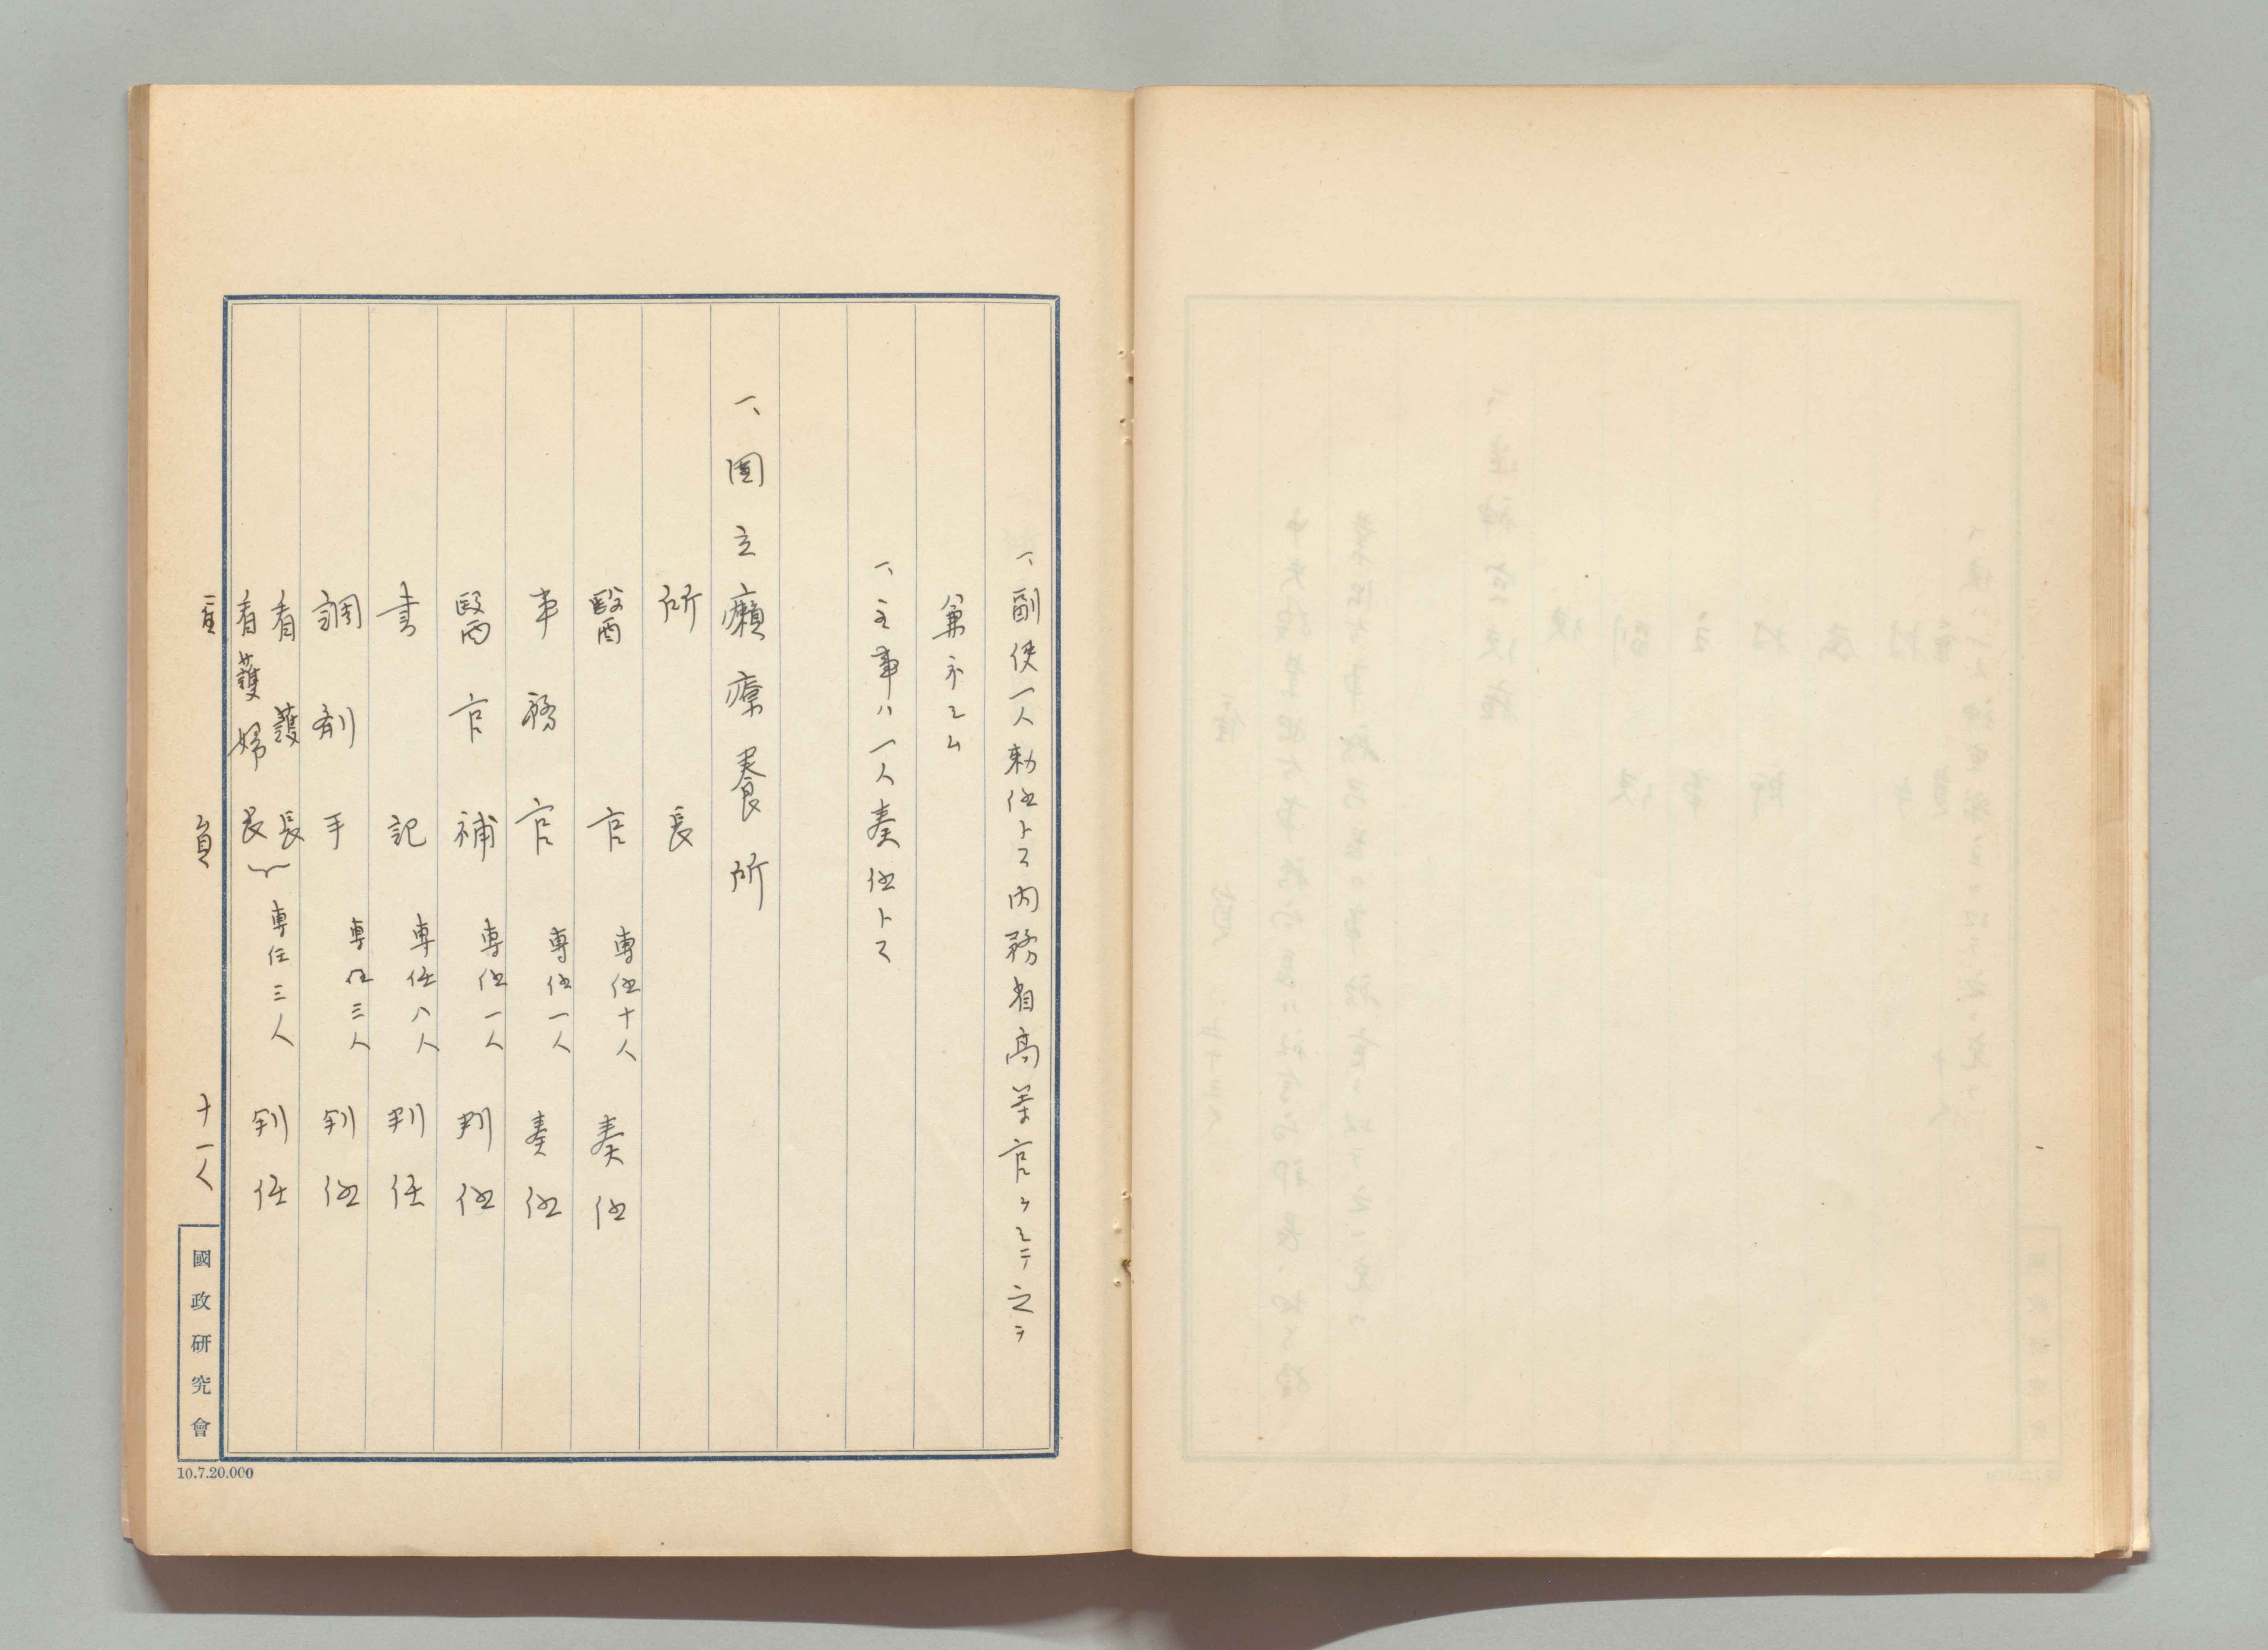 一、副使一人勅任トス内務省高等官ヲシテ之ヲ
兼ネシム
一、主事ハ一人奏任トス
一、國立癩療養所
所長
醫官 専任十人 奏任
事務官 専任一人 奏任
醫官補 専任一人 判任
書記 専任八人 判任
調剤手 専任三人 判任
看護長
看護婦長 専任三人 判任
雇員 十一人
國政研究會
10.7.20.000